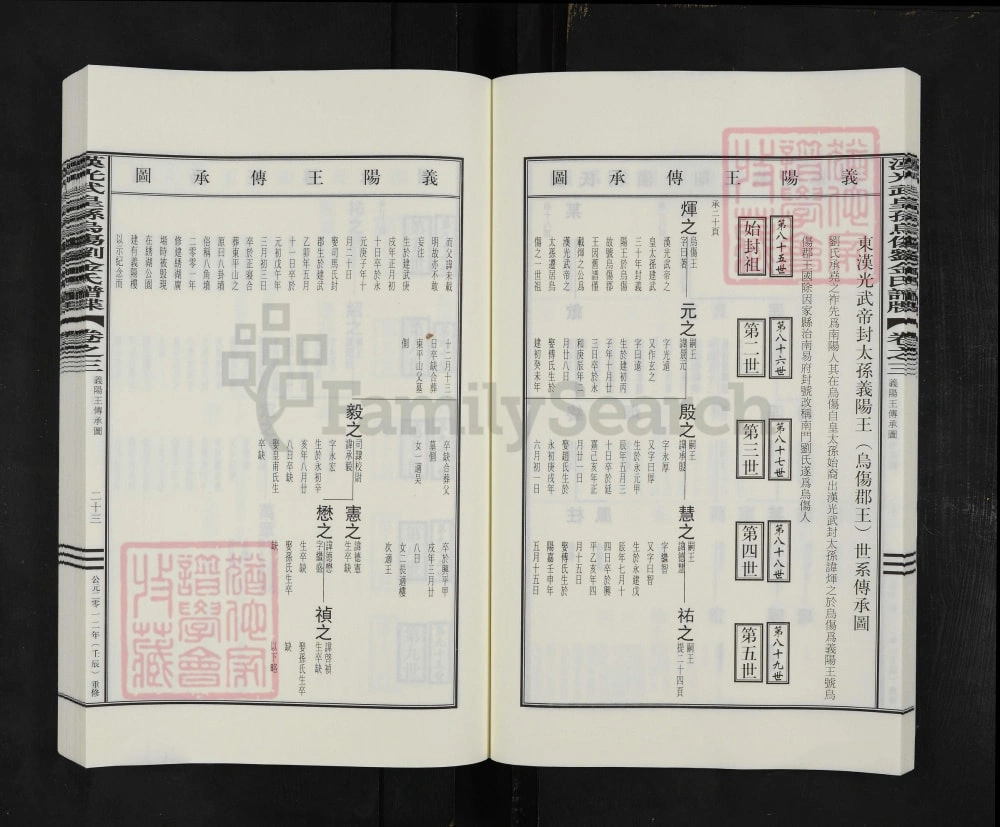 義陽王傳承圖
東漢光武帝封太孫義陽王（烏傷郡王）世系傳承圖
劉氏承堯之祚先爲南陽人其在烏傷自皇太孫始裔出漢光武封太孫諱煇之於烏傷爲義陽王號烏
傷郡王國除因家縣治南易府封號改稱南門劉氏遂爲烏傷人
第八十五世
始封祖
第八十六世
第二世
第八十七世
第三世
第八十八世
第四世
第八十九世
第五世
承二十頁
煇之
烏傷王
字曰著
漢光武帝之
皇太孫建武
三十年封義
陽王於烏傷
故號烏傷郡
王因舊譜僅
載煇之公爲
漢光武帝之
太孫遷居烏
傷之一世祖
元之
嗣王
諱晟元
字光遠
又作玄之
字曰遠
生於建初丙
子年十月廿
三日卒於永
和庚辰年二
月廿八日
娶傅氏生於
建初癸未年
殷之
嗣王
諱承殷
字永厚
又字曰厚
生於永元甲
辰年五月三
十日卒於延
熹己亥年正
月廿一日
娶趙氏生於
永初庚戌年
六月初一日
慧之
嗣王
諱德慧
字繼智
又字曰智
生於永建戊
辰年七月十
四日卒於興
平乙亥年四
月十五日
娶傅氏生於
陽嘉壬申年
五月十五日
祐之
嗣王
提二十四頁
漢光武皇孫烏傷劉金氏譜牒
卷之三
義陽王傳承圖
義陽王傳承圖
而父諱未載
明故亦不敢
妄注
生於建武庚
戌年正月初
十日卒於永
元庚子年十
月二十日
娶司馬氏封
郡生於建武
乙卯年五月
十一日卒於
元初戊午年
三月初三日
卒於正寢合
葬東平山之
原曰八卦墳
俗稱八角墳
二零零一年
修建綉湖廣
場時被毀現
在綉湖公園
建有義陽樓
以示紀念而
十二月十三
日卒缺合葬
東平山父墓
側
毅之
司隷校尉
諱承毅
字永宏
生於永初辛
亥年八月廿
八日卒缺
娶皇甫氏生
卒缺
卒缺合葬父
墓側
女一適吳
憲之
諱德憲
生卒缺
懋之
諱德懋
字繼盛
生卒缺
娶孫氏生卒
缺
卒於興平甲
戌年三月廿
八日
女二長適樓
次適王
禎之
諱啓禎
生卒缺
娶孫氏生卒
缺
以下略
漢光武皇孫烏傷劉金氏譜牒
卷之三
義陽王傳承圖
二十三
公元二零一二年（壬辰）重修
FamilySearch